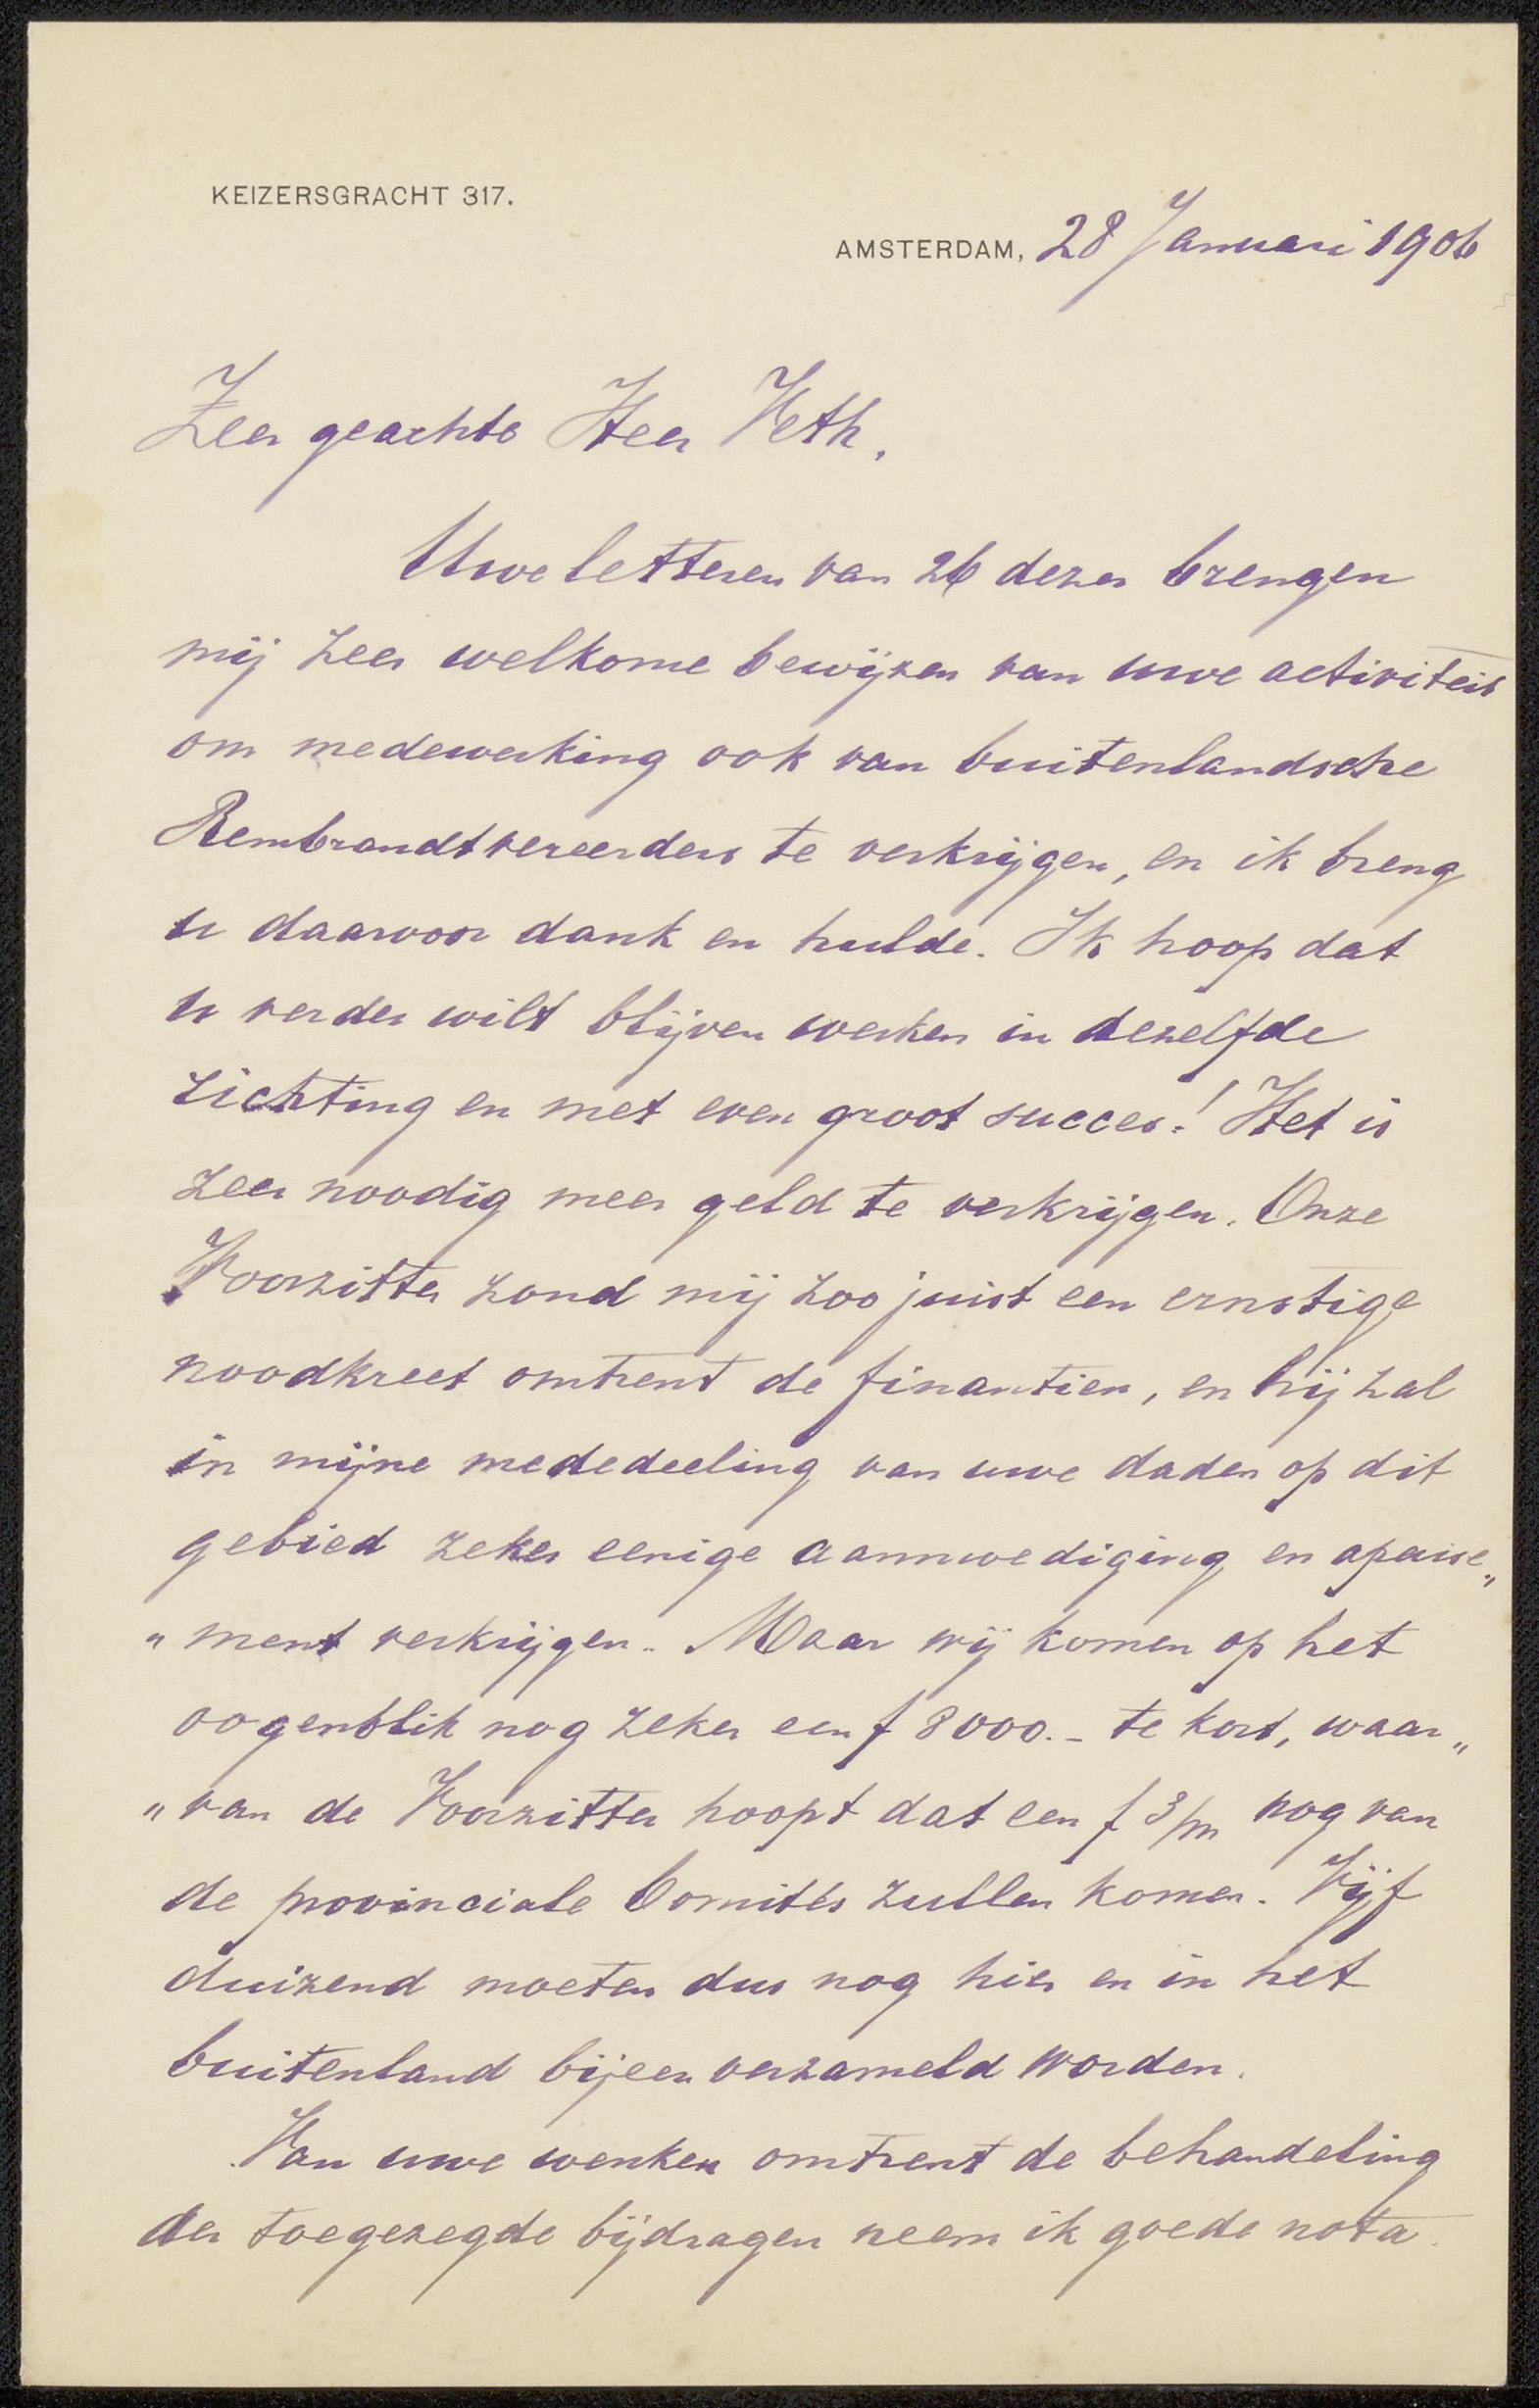 KEIZERSGRACHT 317.
AMSTERDAM, 28 Januari 1906
Zeer geachte Heer Veth,
Uwe letteren van 26 dezer brengen
mij zeer welkome bewijzen van uwe activiteit
om medewerking ook van buitenlandsche
Rembrandtvereerders te verkrijgen, en ik breng
u daarvoor dank en hulde. Ik hoop dat
u verder wilt blijven werken in dezelfde
richting en met even groot succes! Het is
zeer noodig meer geld te verkrijgen. Onze
Voorzitter zond mij zoo juist een ernstige
noodkreet omtrent de finantien, en hij zal
in mijne mededeeling van uwe daden op dit
gebied zeker eenige aanmoediging en apaise„
„ment verkrijgen. Maar wij komen op het
oogenblik nog zeker een f 8000.- te kort, waar„
„van de Voorzitter hoopt dat een f 3/m nog van
de provinciale Comités zullen komen. Vijf
duizend moeten dus nog hier en in het
buitenland bijeen verzameld worden.
Van uwe wenken omtrent de behandeling
der toegezegde bijdragen neem ik goede nota.